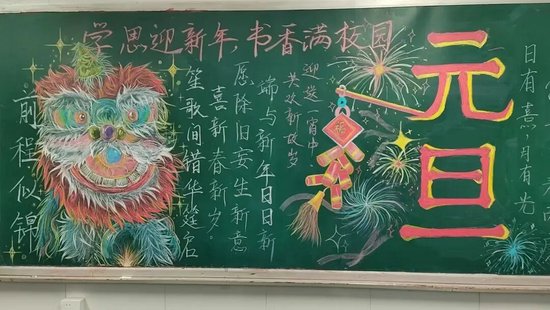 学思迎新年,书香满校园
前程似锦
笙歌间错华筵启
喜新春新岁。
愿除旧妄生新意
端与新年日日新
共欢新故岁
迎送一宵中
福
元旦
日有熹,月有光